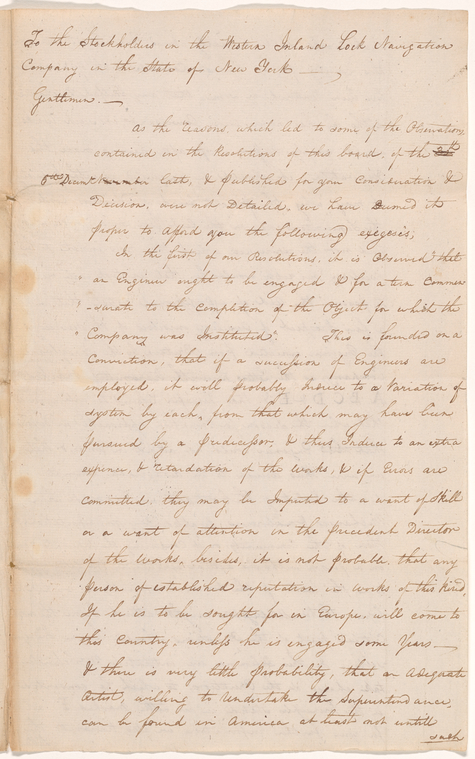 To the Stockholders in the Western Inland Lock Navigation
Company in the State of New York
Gentlemen.
As the reasons, which led to some of the Observations
contained in the Resolutions of this board, of the
last, & published for your Consideration &
Decision, were not Detailed, we have Deemed it
proper to afford you the following exegesis,
In the first of our Resolutions, it is Observed "that
" an Engineer ought to be engaged & for a term commen
" -surate to the completion of the Object for which the
" Company was Instituted". This is founded on a
Conviction, that if a succession of Engineers are
employed, it will probably Induce to a Variation of
system by each, from that which may have been
pursued by a predecessor, & thus Induce to an extra
expence, & retardation of the works, & if Errors are
committed, they may be Imputed to a want of Skill
or a want of attention in the precedent Director
of the works, besides, it is not probable, that any
person of established reputation in works of this kind,
If he is to be sought for in Europe, will come to
this Country, unless he is engaged some Years
& there is very little probability, that an Adequate
Artist, willing to undertake the Superintendance,
can be found in America at least not untill
such